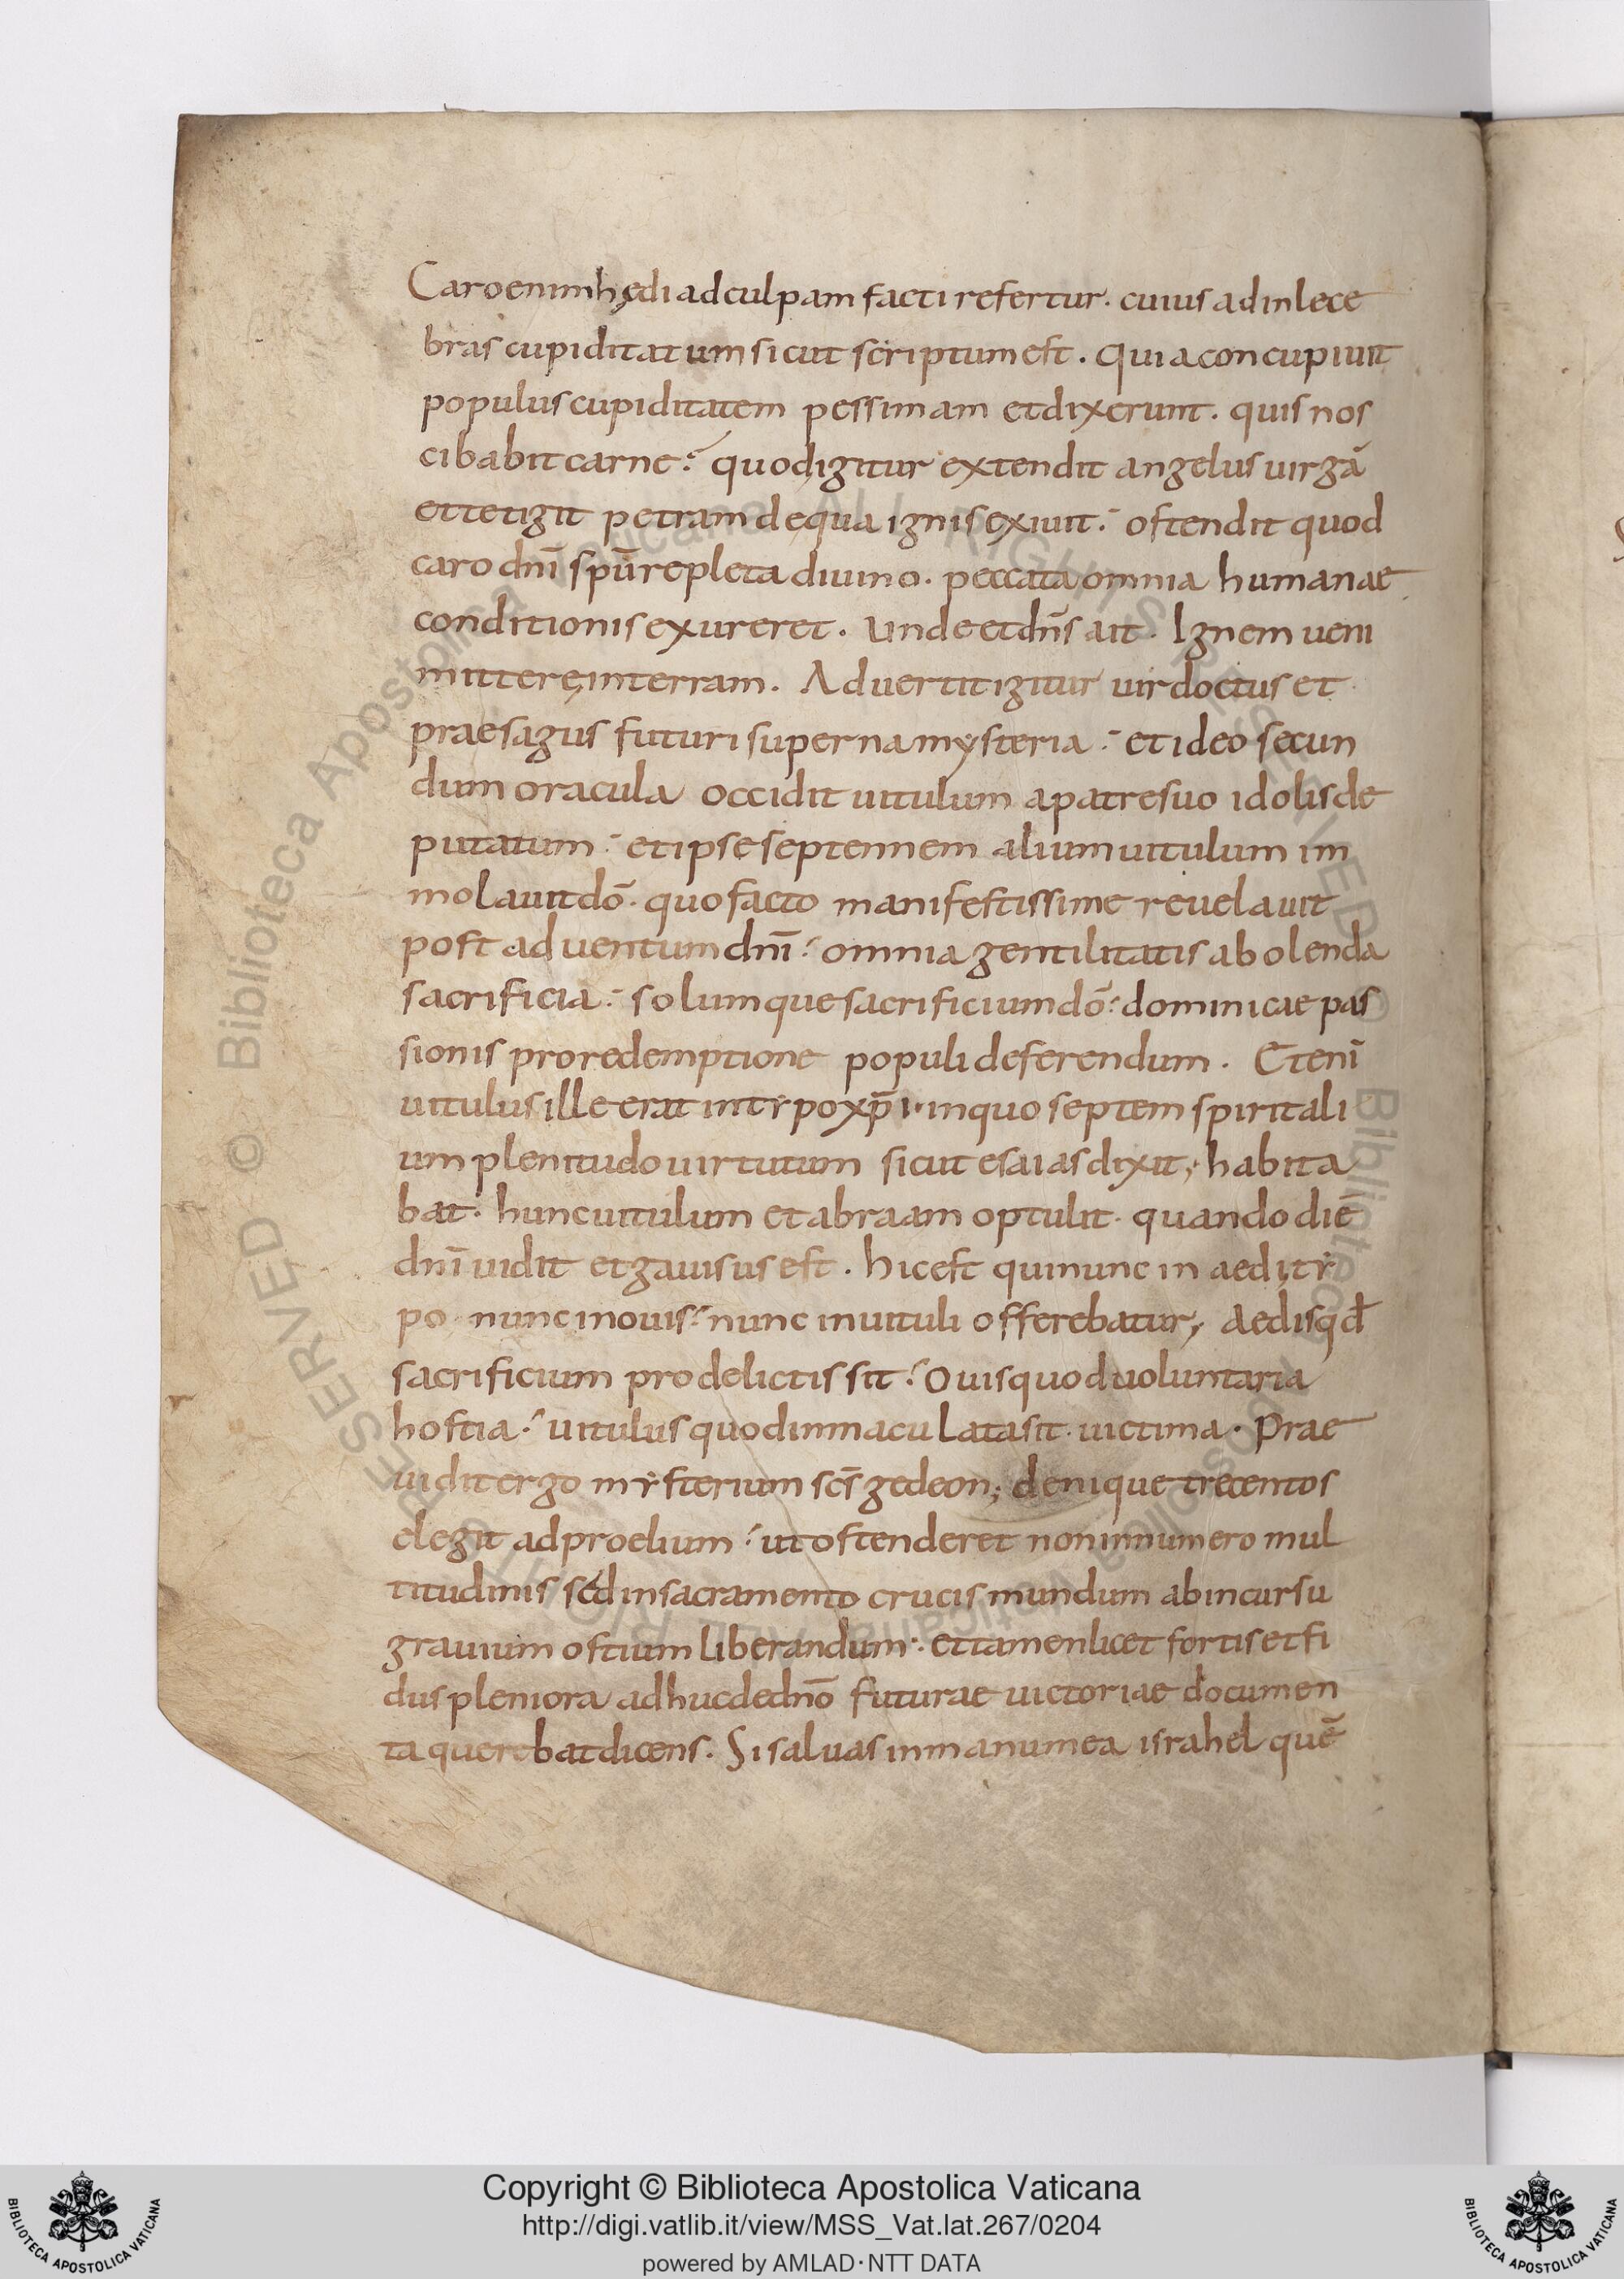 Caro enim hędi ad culpam facti refertur. cuius ad inlece
bras cupiditatum sicut scriptum est. Quia concupiuit
populus cupiditatem pessimam et dixerunt. quis nos
cibabit carne? quod igitur extendit angelus uirgā
et tetigit petram de qua ignis exiuit. ostendit quod
caro dn̄i spū repleta diuino. peccata omnia humanae
conditionis exureret. Unde et dn̄s ait. Ignem ueni
mittere in terram. Aduertit igitur uir doctus et
praesagus futuri superna mysteria. et ideo secun
dum oracula occidit uitulum a patre suo idolis de
putatum. et ipse septennem alium uitulum im
molauit dō. quo facto manifestissime reuelauit
post aduentum dn̄i. omnia gentilitatis abolenda
sacrificia. solumque sacrificium dō. dominicae pas
sionis pro redemptione populi deferendum. Etenī
uitulus ille erat in typo xp̄i. in quo septem spiritali
um plenitudo uirtutum sicut esaias dixit; habita
bat. hunc uitulum et abraam optulit. quando diē
dn̄i uidit et gauisus est. hic est qui nunc in aedi ty
po nunc in ouis. nunc in uituli offerebatur; Aedis qđ
sacrificium pro delictis sit. Ouis quod uoluntaria
hostia. uitulus quod inmaculata sit uictima. Prae
uidit ergo mysterium scs̄ gedeon; denique trecentos
elegit ad proelium. ut ostenderet non in numero mul
titudinis sed in sacramento crucis mundum ab incursu
grauium ostium liberandum. et tamen licet fortis et fi
dus pleniora adhuc de dn̄o futurae uictoriae documen
ta querebat dicens. Si saluas in manu mea israhel quē
Copyright © Biblioteca Apostolica Vaticana
http://digi.vatlib.it/view/MSS_Vat.lat.267/0204
powered by AMLAD·NTT DATA
BIBLIOTECA APOSTOLICA VATICANA
BIBLIOTECA APOSTOLICA VATICANA